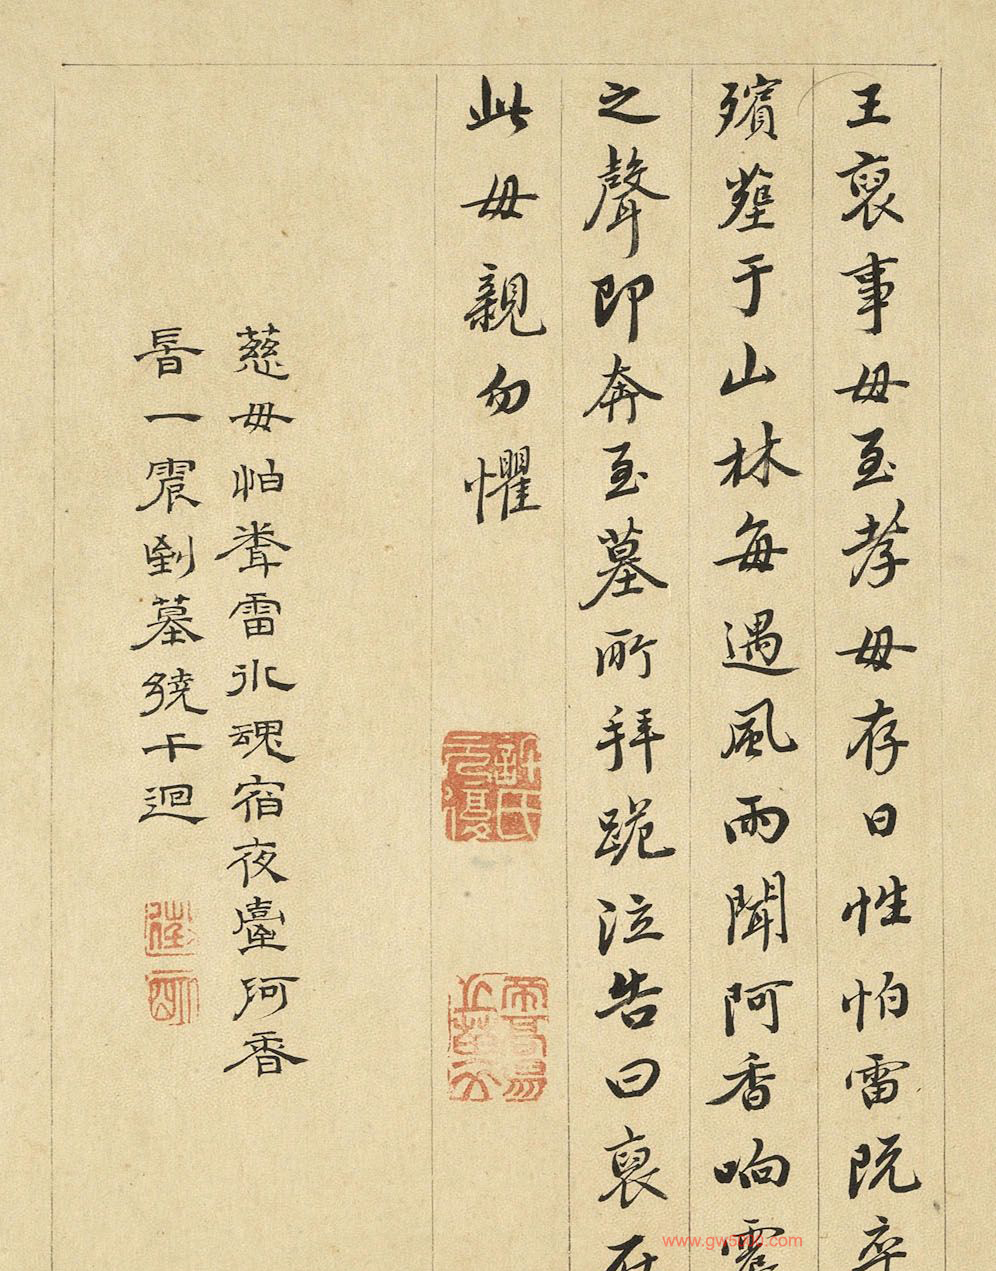 王裒事母至孝母存日性怕雷既卒
殯葬于山林每遇風雨聞阿香响震
之聲即奔至墓所拜跪泣告曰裒在
此母親勿懼
慈母怕聞雷冰魂宿夜臺阿香
時一震到墓繞千迴
www.gw5000.com